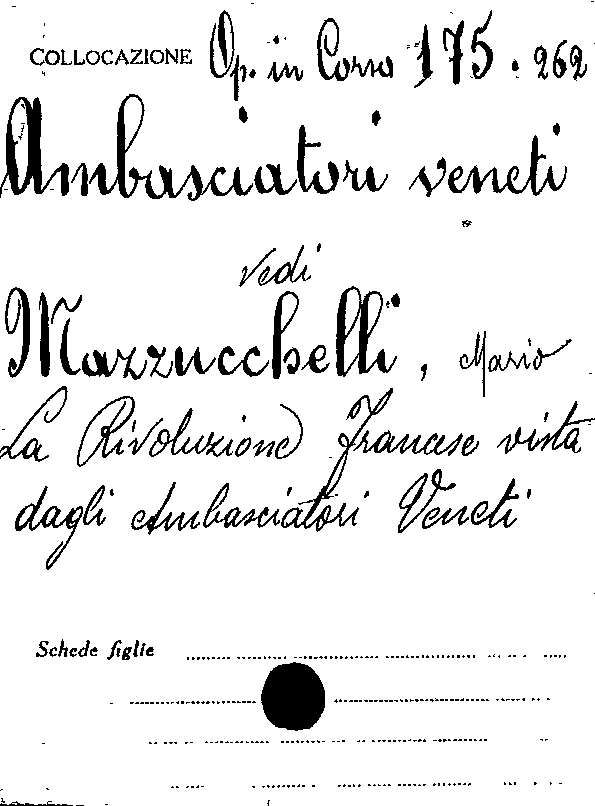 COLLOCAZIONE Op. in Corso 175.262
Ambasciatori veneti
vedi
Mazzucchelli, Mario
La Rivoluzione Francese vista
dagli Ambasciatori Veneti
Schede figlie